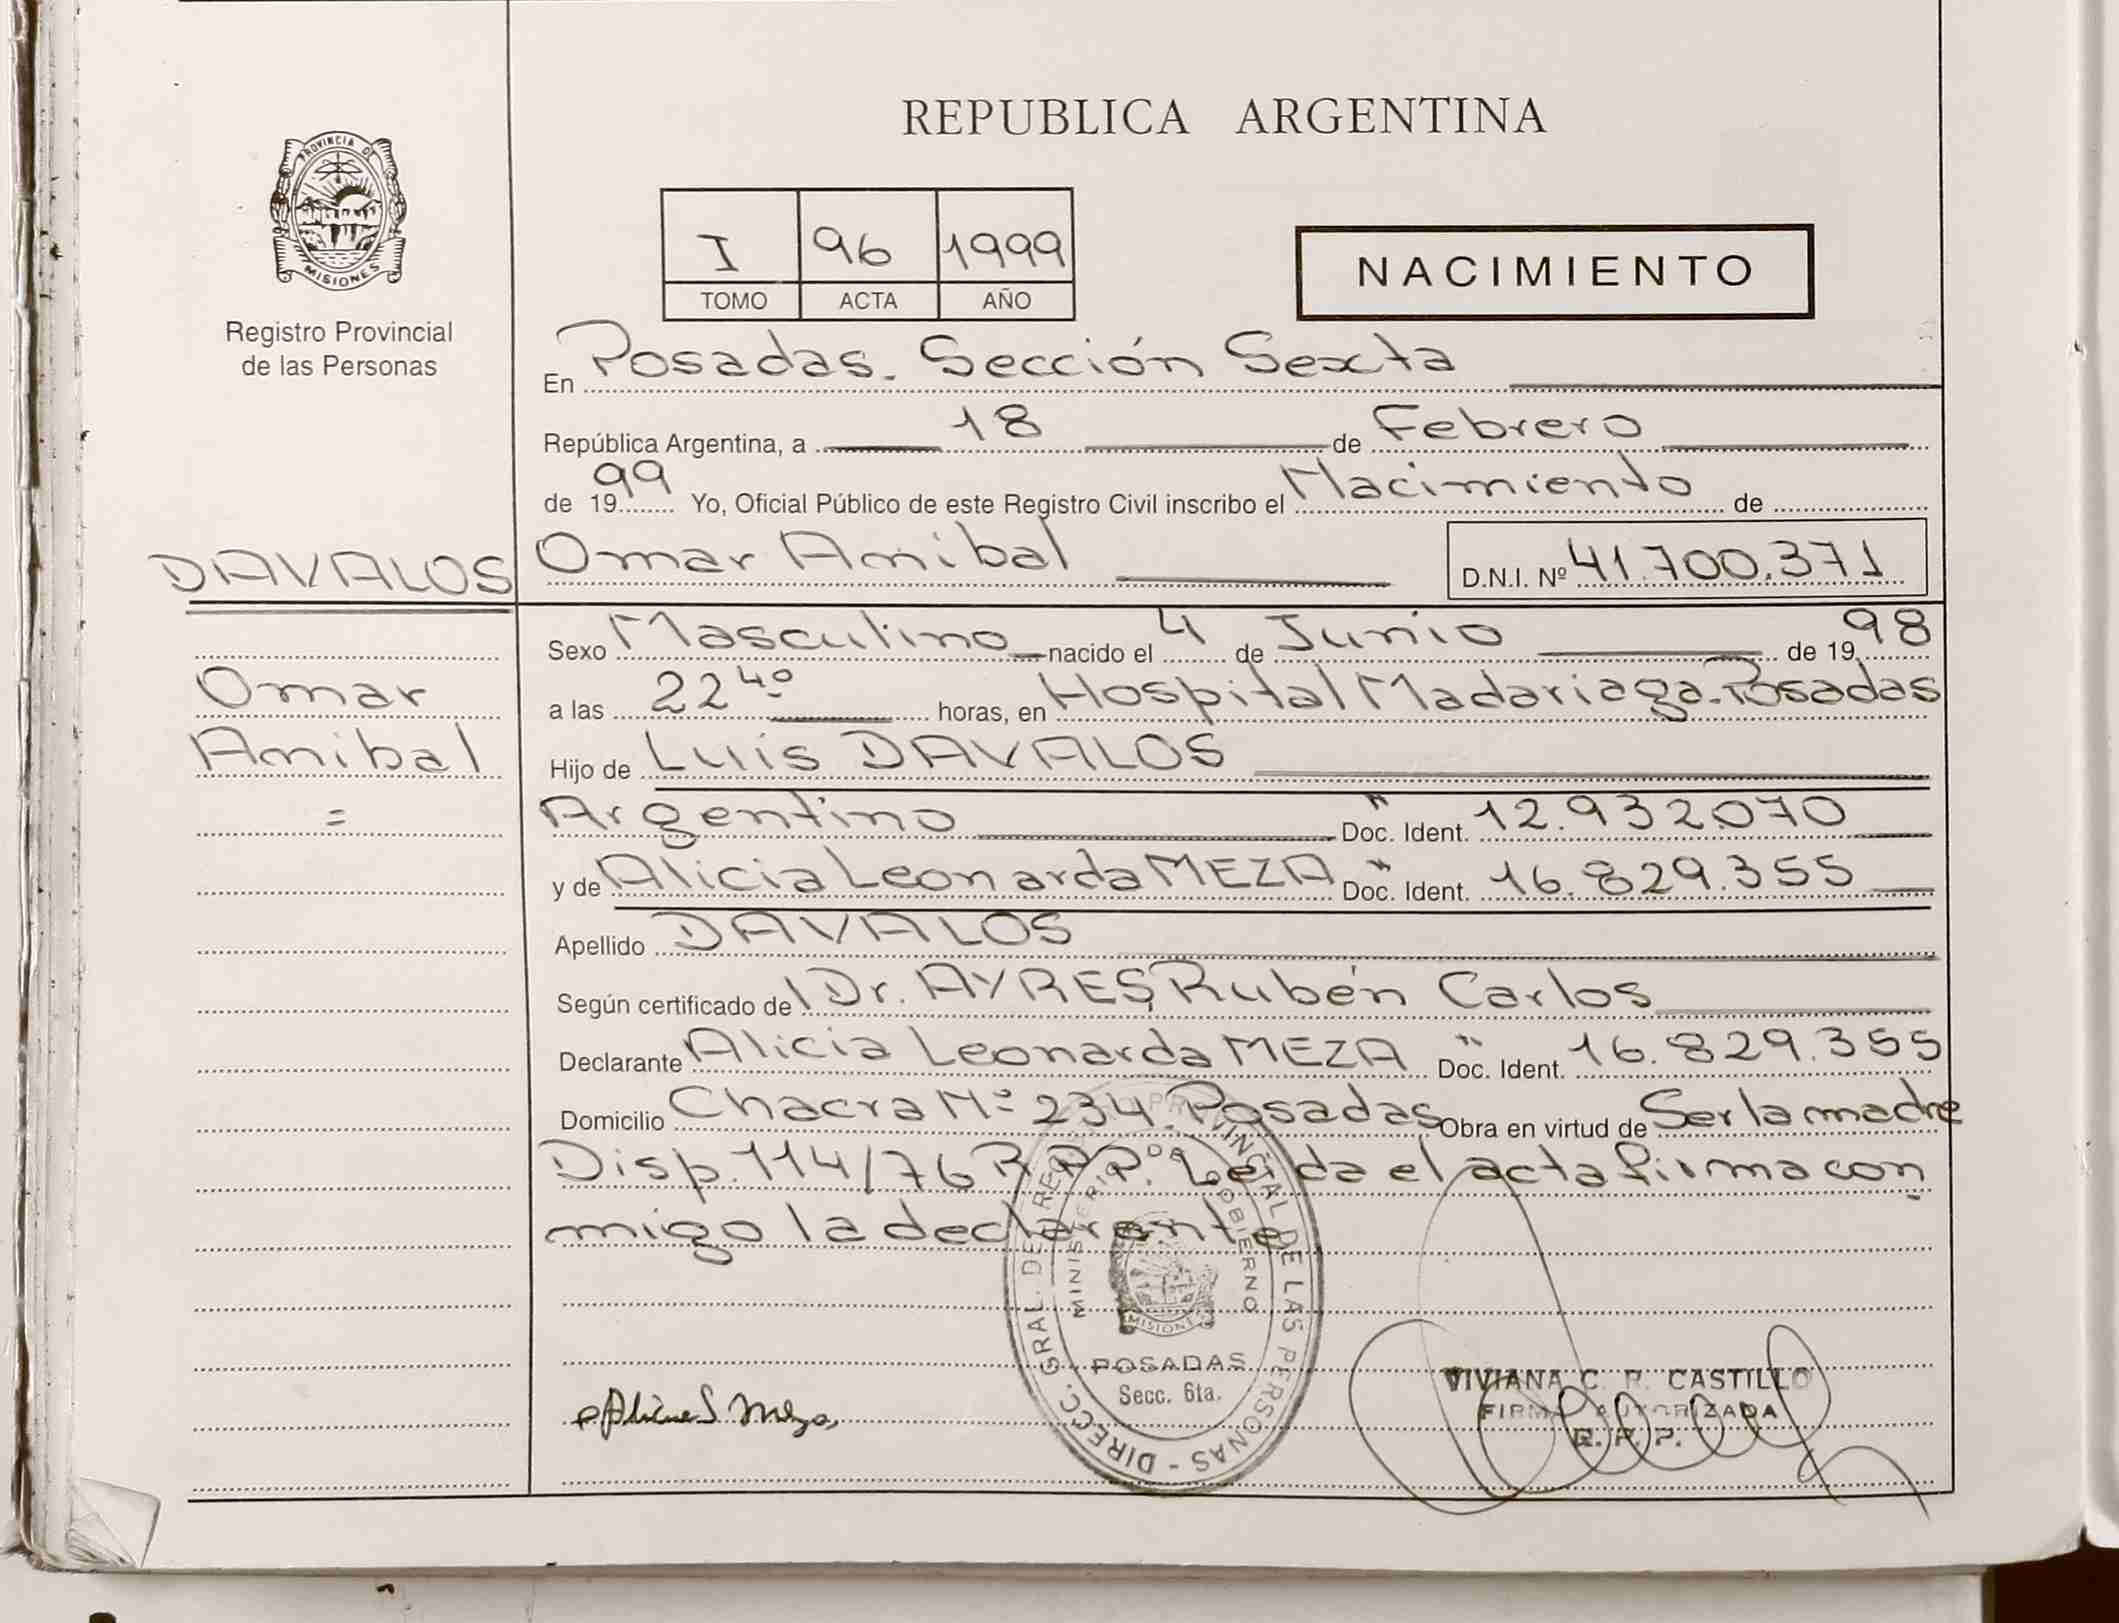 REPUBLICA ARGENTINA
PROVINCIA DE
MISIONES
Registro Provincial
de las Personas
I 96 1999
TOMO ACTA AÑO
NACIMIENTO
En Posadas. Sección Sexta
República Argentina, a 18 de Febrero
de 1999 Yo, Oficial Público de este Registro Civil inscribo el Nacimiento de
DAVALOS Omar Anibal D.N.I. Nº 41.700.371
Sexo Masculino nacido el 4 de Junio de 1998
Omar
a las 22 40 horas, en Hospital Madariaga-Posadas
Anibal
Hijo de Luis DAVALOS
=
Argentino Doc. Ident. " 12.932.070
y de Alicia Leonarda MEZA Doc. Ident. " 16.829.355
Apellido DAVALOS
Según certificado del Dr. AYRES, Rubén Carlos
Declarante Alicia Leonarda MEZA Doc. Ident. " 16.829.355
Domicilio Chacra Nº 234. Posadas Obra en virtud de Ser la madre
Disp. 114/76 R.P.P. Leida el acta firma con
migo la declarante
DIRECC. GRAL. DE REG. PROVINCIAL DE LAS PERSONAS -
MINISTERIO DE GOBIERNO
MISIONES
POSADAS
Secc. 6ta.
Meza
VIVIANA C. R. CASTILLO
FIRMA AUTORIZADA
R. P. P.